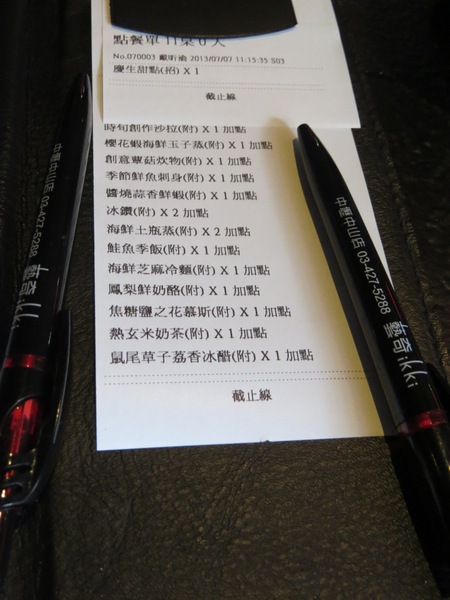 點餐單 11桌 0 人
No.070003 戴昕渝 2013/07/07 11:15:35 S03
慶生甜點(招) X 1
截止線
時旬創作沙拉(附) X 1 加點
櫻花蝦海鮮玉子蒸(附) X 1 加點
創意蕈菇炊物(附) X 1 加點
季節鮮魚刺身(附) X 1 加點
醬燒蒜香鮮蝦(附) X 1 加點
冰鑽(附) X 2 加點
海鮮土瓶蒸(附) X 2 加點
鮭魚季飯(附) X 1 加點
海鮮芝麻冷麵(附) X 1 加點
鳳梨鮮奶酪(附) X 1 加點
焦糖鹽之花慕斯(附) X 1 加點
熱玄米奶茶(附) X 1 加點
鼠尾草子荔香冰醋(附) X 1 加點
截止線
中壢中山店 03-427-5288 藝奇 ikki
中壢中山店 03-427-5288 藝奇 ikki